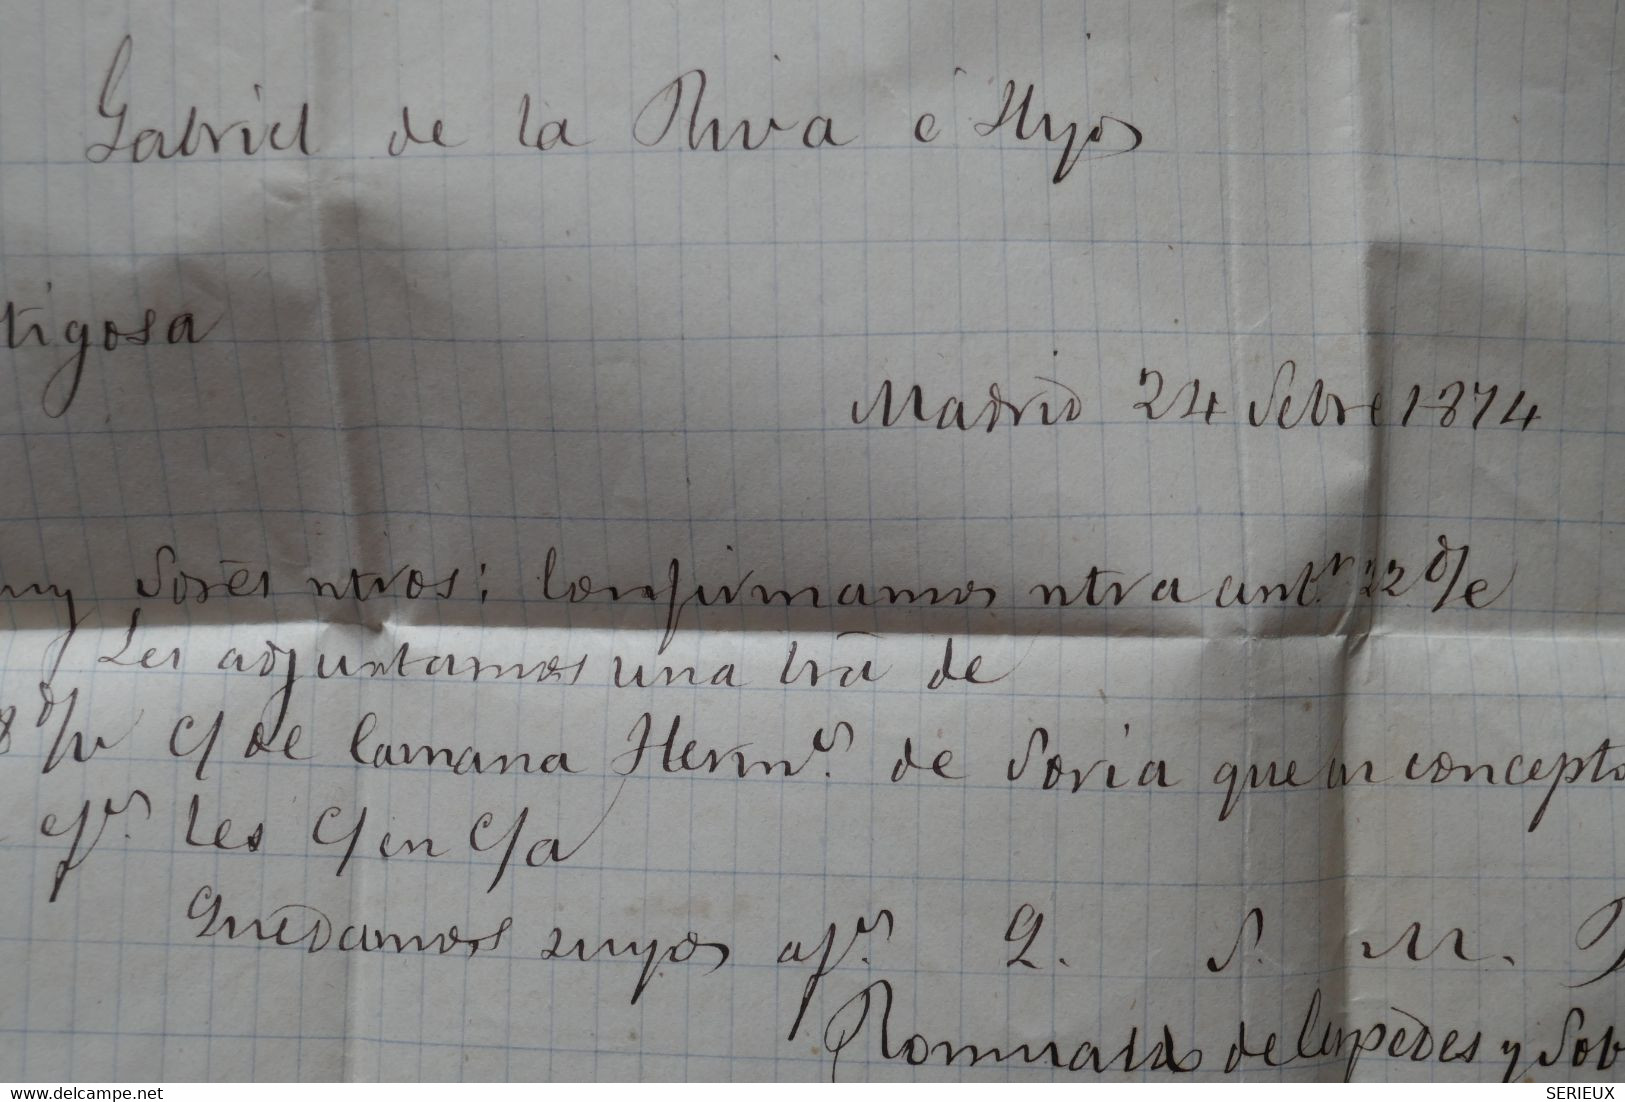 Gabriel de la Riva é Hijos
tigosa
Madrid 24 Setbre 1874
uy Sores ntros: Confirmamos ntra antr. 22 d/e
Les adjuntamos una lrã de
8 d/v c/ de Camana Hermos. de Soria que en concepto
efvo. les c/ en c/a
Quedamos suyos afmos. Q. S. M.
Romualdo de Céspedes y Sob
www.delcampe.net
SERIEUX